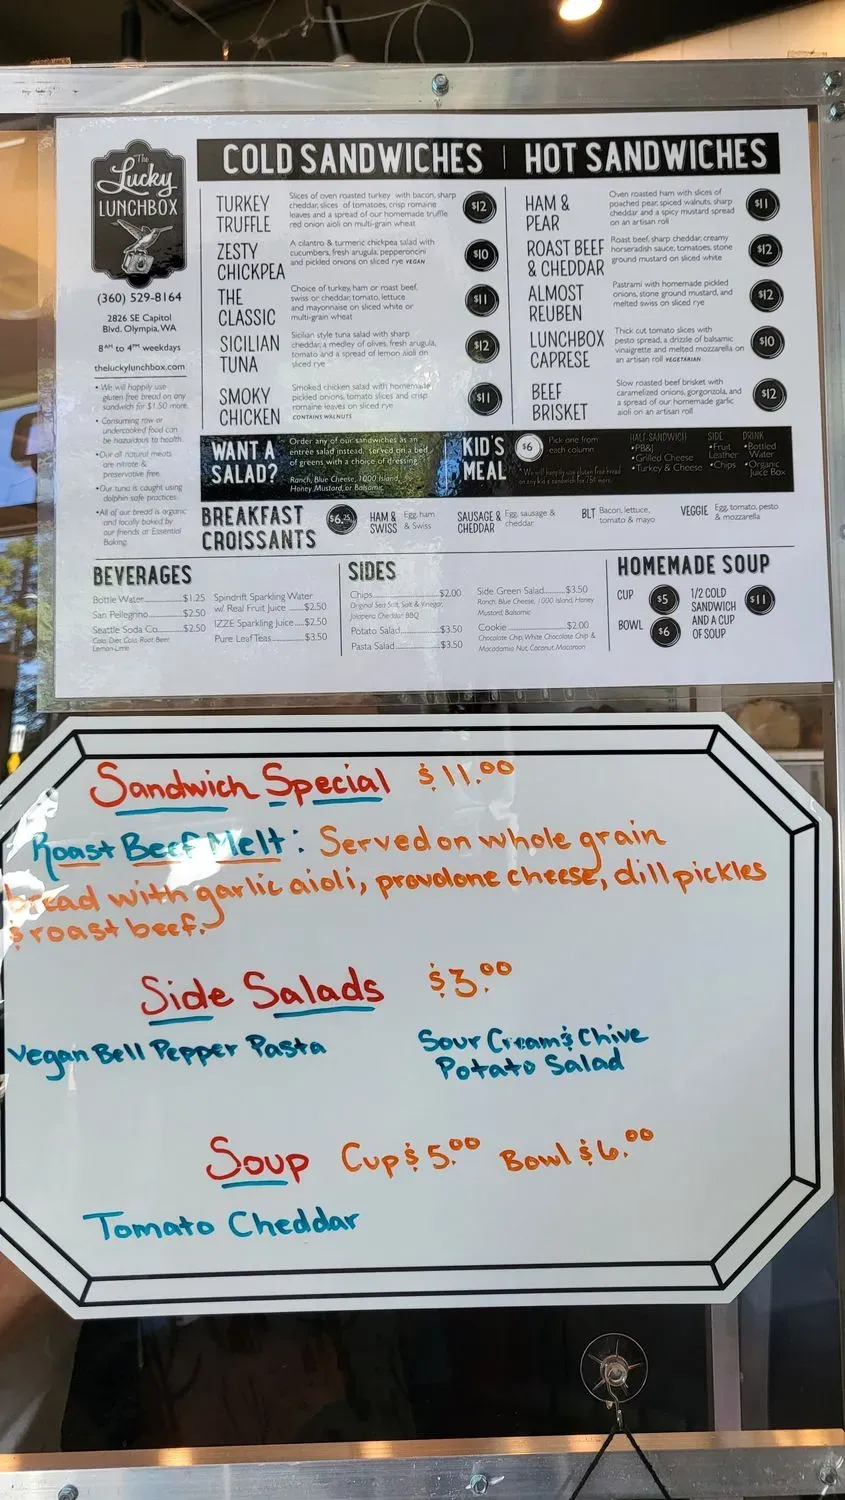 The
Lucky
LUNCHBOX
(360) 529-8164
2826 SE Capitol
Blvd. Olympia, WA
8AM to 4PM weekdays
theluckylunchbox.com
• We will happily use
gluten free bread on any
sandwich for $1.50 more.
• Consuming raw or
undercooked food can
be hazardous to health.
• Our all natural meats
are nitrate &
preservative free.
• Our tuna is caught using
dolphin safe practices.
• All of our bread is organic
and locally baked by
our friends at Essential
Baking.
COLD SANDWICHES | HOT SANDWICHES
TURKEY
TRUFFLE
Slices of oven roasted turkey with bacon, sharp
cheddar, slices of tomatoes, crisp romaine
leaves and a spread of our homemade truffle
red onion aioli on multi-grain wheat
$12
ZESTY
CHICKPEA
A cilantro & turmeric chickpea salad with
cucumbers, fresh arugula, pepperoncini
and pickled onions on sliced rye VEGAN
$10
THE
CLASSIC
Choice of turkey, ham or roast beef,
swiss or cheddar, tomato, lettuce
and mayonnaise on sliced white or
multi-grain wheat
$11
SICILIAN
TUNA
Sicilian style tuna salad with sharp
cheddar, a medley of olives, fresh arugula,
tomato and a spread of lemon aioli on
sliced rye
$12
SMOKY
CHICKEN
Smoked chicken salad with homemade
pickled onions, tomato slices and crisp
romaine leaves on sliced rye
CONTAINS WALNUTS
$11
HAM &
PEAR
Oven roasted ham with slices of
poached pear, spiced walnuts, sharp
cheddar and a spicy mustard spread
on an artisan roll
$11
ROAST BEEF
& CHEDDAR
Roast beef, sharp cheddar, creamy
horseradish sauce, tomatoes, stone
ground mustard on sliced white
$12
ALMOST
REUBEN
Pastrami with homemade pickled
onions, stone ground mustard, and
melted swiss on sliced rye
$12
LUNCHBOX
CAPRESE
Thick cut tomato slices with
pesto spread, a drizzle of balsamic
vinaigrette and melted mozzarella on
an artisan roll VEGETARIAN
$10
BEEF
BRISKET
Slow roasted beef brisket with
caramelized onions, gorgonzola, and
a spread of our homemade garlic
aioli on an artisan roll
$12
WANT A
SALAD?
Order any of our sandwiches as an
entrée salad instead, served on a bed
of greens with a choice of dressing.
Ranch, Blue Cheese, 1000 Island,
Honey Mustard, or Balsamic
KID'S
MEAL
$6
Pick one from
each column
HALF-SANDWICH
•PB&J
•Grilled Cheese
•Turkey & Cheese
SIDE
•Fruit
Leather
•Chips
DRINK
•Bottled
Water
•Organic
Juice Box
*We will happily use gluten free bread
on any kid's sandwich for 75¢ more.
BREAKFAST
CROISSANTS
$6.25
HAM &
SWISS
Egg, ham
& Swiss
SAUSAGE &
CHEDDAR
Egg, sausage &
cheddar
BLT
Bacon, lettuce,
tomato & mayo
VEGGIE
Egg, tomato, pesto
& mozzarella
BEVERAGES
Bottle Water.....$1.25
San Pellegrino.....$2.50
Seattle Soda Co.....$2.50
Cola, Diet Cola, Root Beer,
Lemon-Lime
Spindrift Sparkling Water
w/ Real Fruit Juice.....$2.50
IZZE Sparkling Juice.....$2.50
Pure Leaf Teas.....$3.50
SIDES
Chips.....$2.00
Original Sea Salt, Salt & Vinegar,
Jalapeno Cheddar, BBQ
Potato Salad.....$3.50
Pasta Salad.....$3.50
Side Green Salad.....$3.50
Ranch, Blue Cheese, 1000 Island, Honey
Mustard, Balsamic
Cookie.....$2.00
Chocolate Chip, White Chocolate Chip &
Macadamia Nut, Coconut Macaroon
HOMEMADE SOUP
CUP $5
BOWL $6
1/2 COLD
SANDWICH
AND A CUP
OF SOUP
$11
Sandwich Special $11.00
Roast Beef Melt: Served on whole grain
bread with garlic aioli, provolone cheese, dill pickles
& roast beef.
Side Salads $3.00
Vegan Bell Pepper Pasta
Sour Cream & Chive
Potato Salad
Soup Cup $5.00 Bowl $6.00
Tomato Cheddar